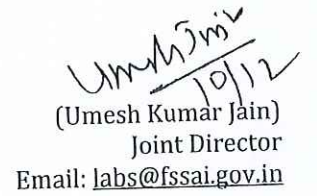 10/12
(Umesh Kumar Jain)
Joint Director
Email: labs@fssai.gov.in